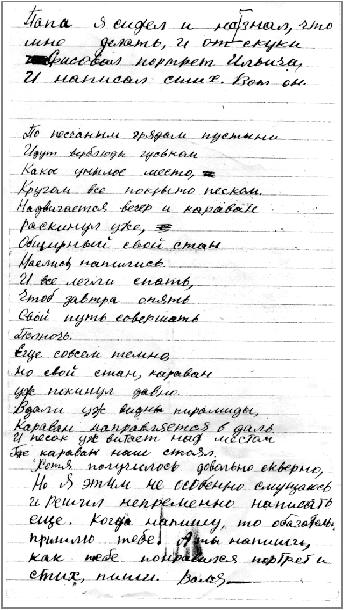 Папа я сидел и не знал, что
мне делать, и от скуки
нарисовал портрет Ильича,
И написал стих. Вот он.
По песчаным грядам пустыни
Идут верблюды гуськом
Какое унылое место,
Кругом все покрыто песком.
Надвигается вечер и караван
Раскинул уже,
Обширный свой стан
Наелись напились.
И все легли спать,
Чтоб завтра опять
Свой путь совершать
Полночь.
Еще совсем темно,
но свой стан, караван
уж покинул давно.
Вдали уж видны пирамиды,
Караван направляется в даль
И песок уж витает над местом
Где караван наш стоял.
Хотя получилось довольно скверно,
Но я этим не особенно смущаюсь
и решил непременно написать
еще. Когда напишу, то обязательно
пришлю тебе. А ты напиши,
как тебе понравился портрет и
стих, пиши. Валя.